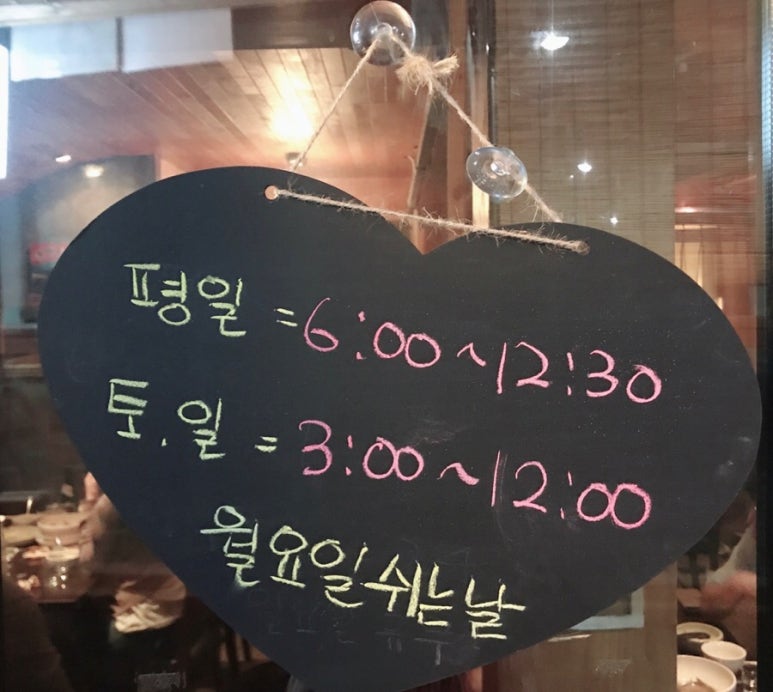 평일 = 6:00~12:30
토.일 = 3:00~12:00
월요일 쉬는날